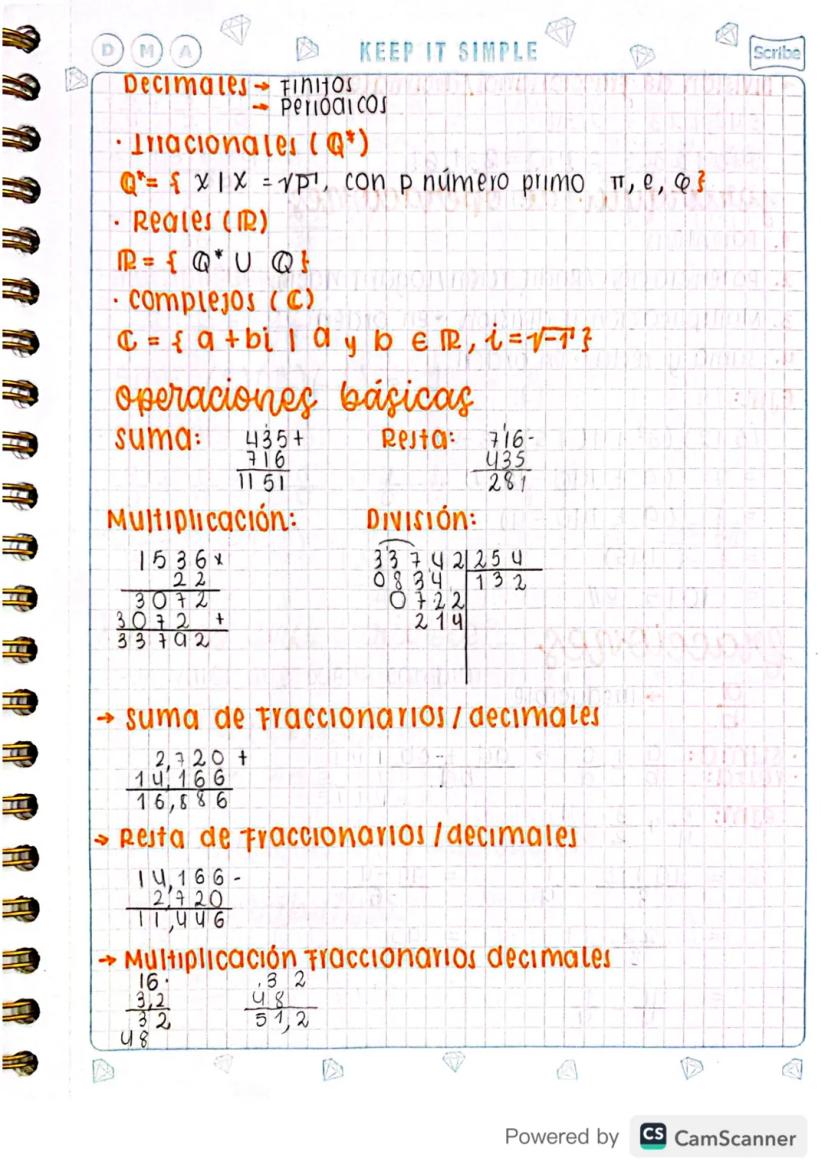 D M A KEEP IT SIMPLE Scribe
Decimales → Finitos
→ Periódicos
· Irracionales (Q*)
Q*= { x | x = √p, con p número primo π, e, φ}
· Reales (ℝ)
ℝ = { Q* ∪ Q}
· Complejos (ℂ)
ℂ = { a + bi | a y b ∈ ℝ, i = √-1 }
operaciones básicas
Suma: 435+ Resta: 716-
716 435
1151 281
Multiplicación: División:
1536x 33742 254
22 0834 132
3072 0722
3072 + 214
33792
→ Suma de Fraccionarios / decimales
2,720 +
14,166
16,886
→ Resta de Fraccionarios / decimales
14,166 -
2,720
11,446
→ Multiplicación Fraccionarios decimales
16· .32
3,2 48
32 51,2
48
Powered by CS CamScanner